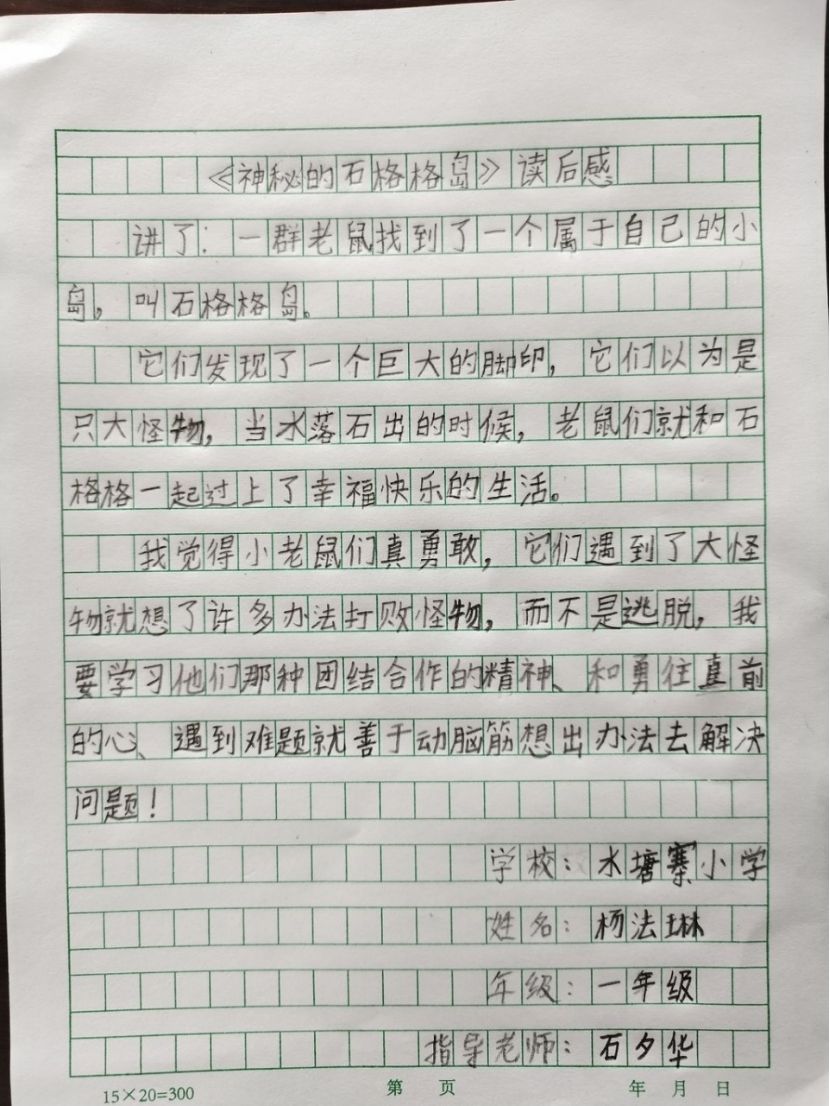 《神秘的石格格岛》读后感
讲了：一群老鼠找到了一个属于自己的小
岛，叫石格格岛。
它们发现了一个巨大的脚印，它们以为是
只大怪物，当水落石出的时候，老鼠们就和石
格格一起过上了幸福快乐的生活。
我觉得小老鼠们真勇敢，它们遇到了大怪
物就想了许多办法打败怪物，而不是逃脱，我
要学习他们那种团结合作的精神、和勇往直前
的心、遇到难题就善于动脑筋想出办法去解决
问题！
学校：水塘寨小学
姓名：杨法琳
年级：一年级
指导老师：石夕华
15×20=300 第 页 年 月 日